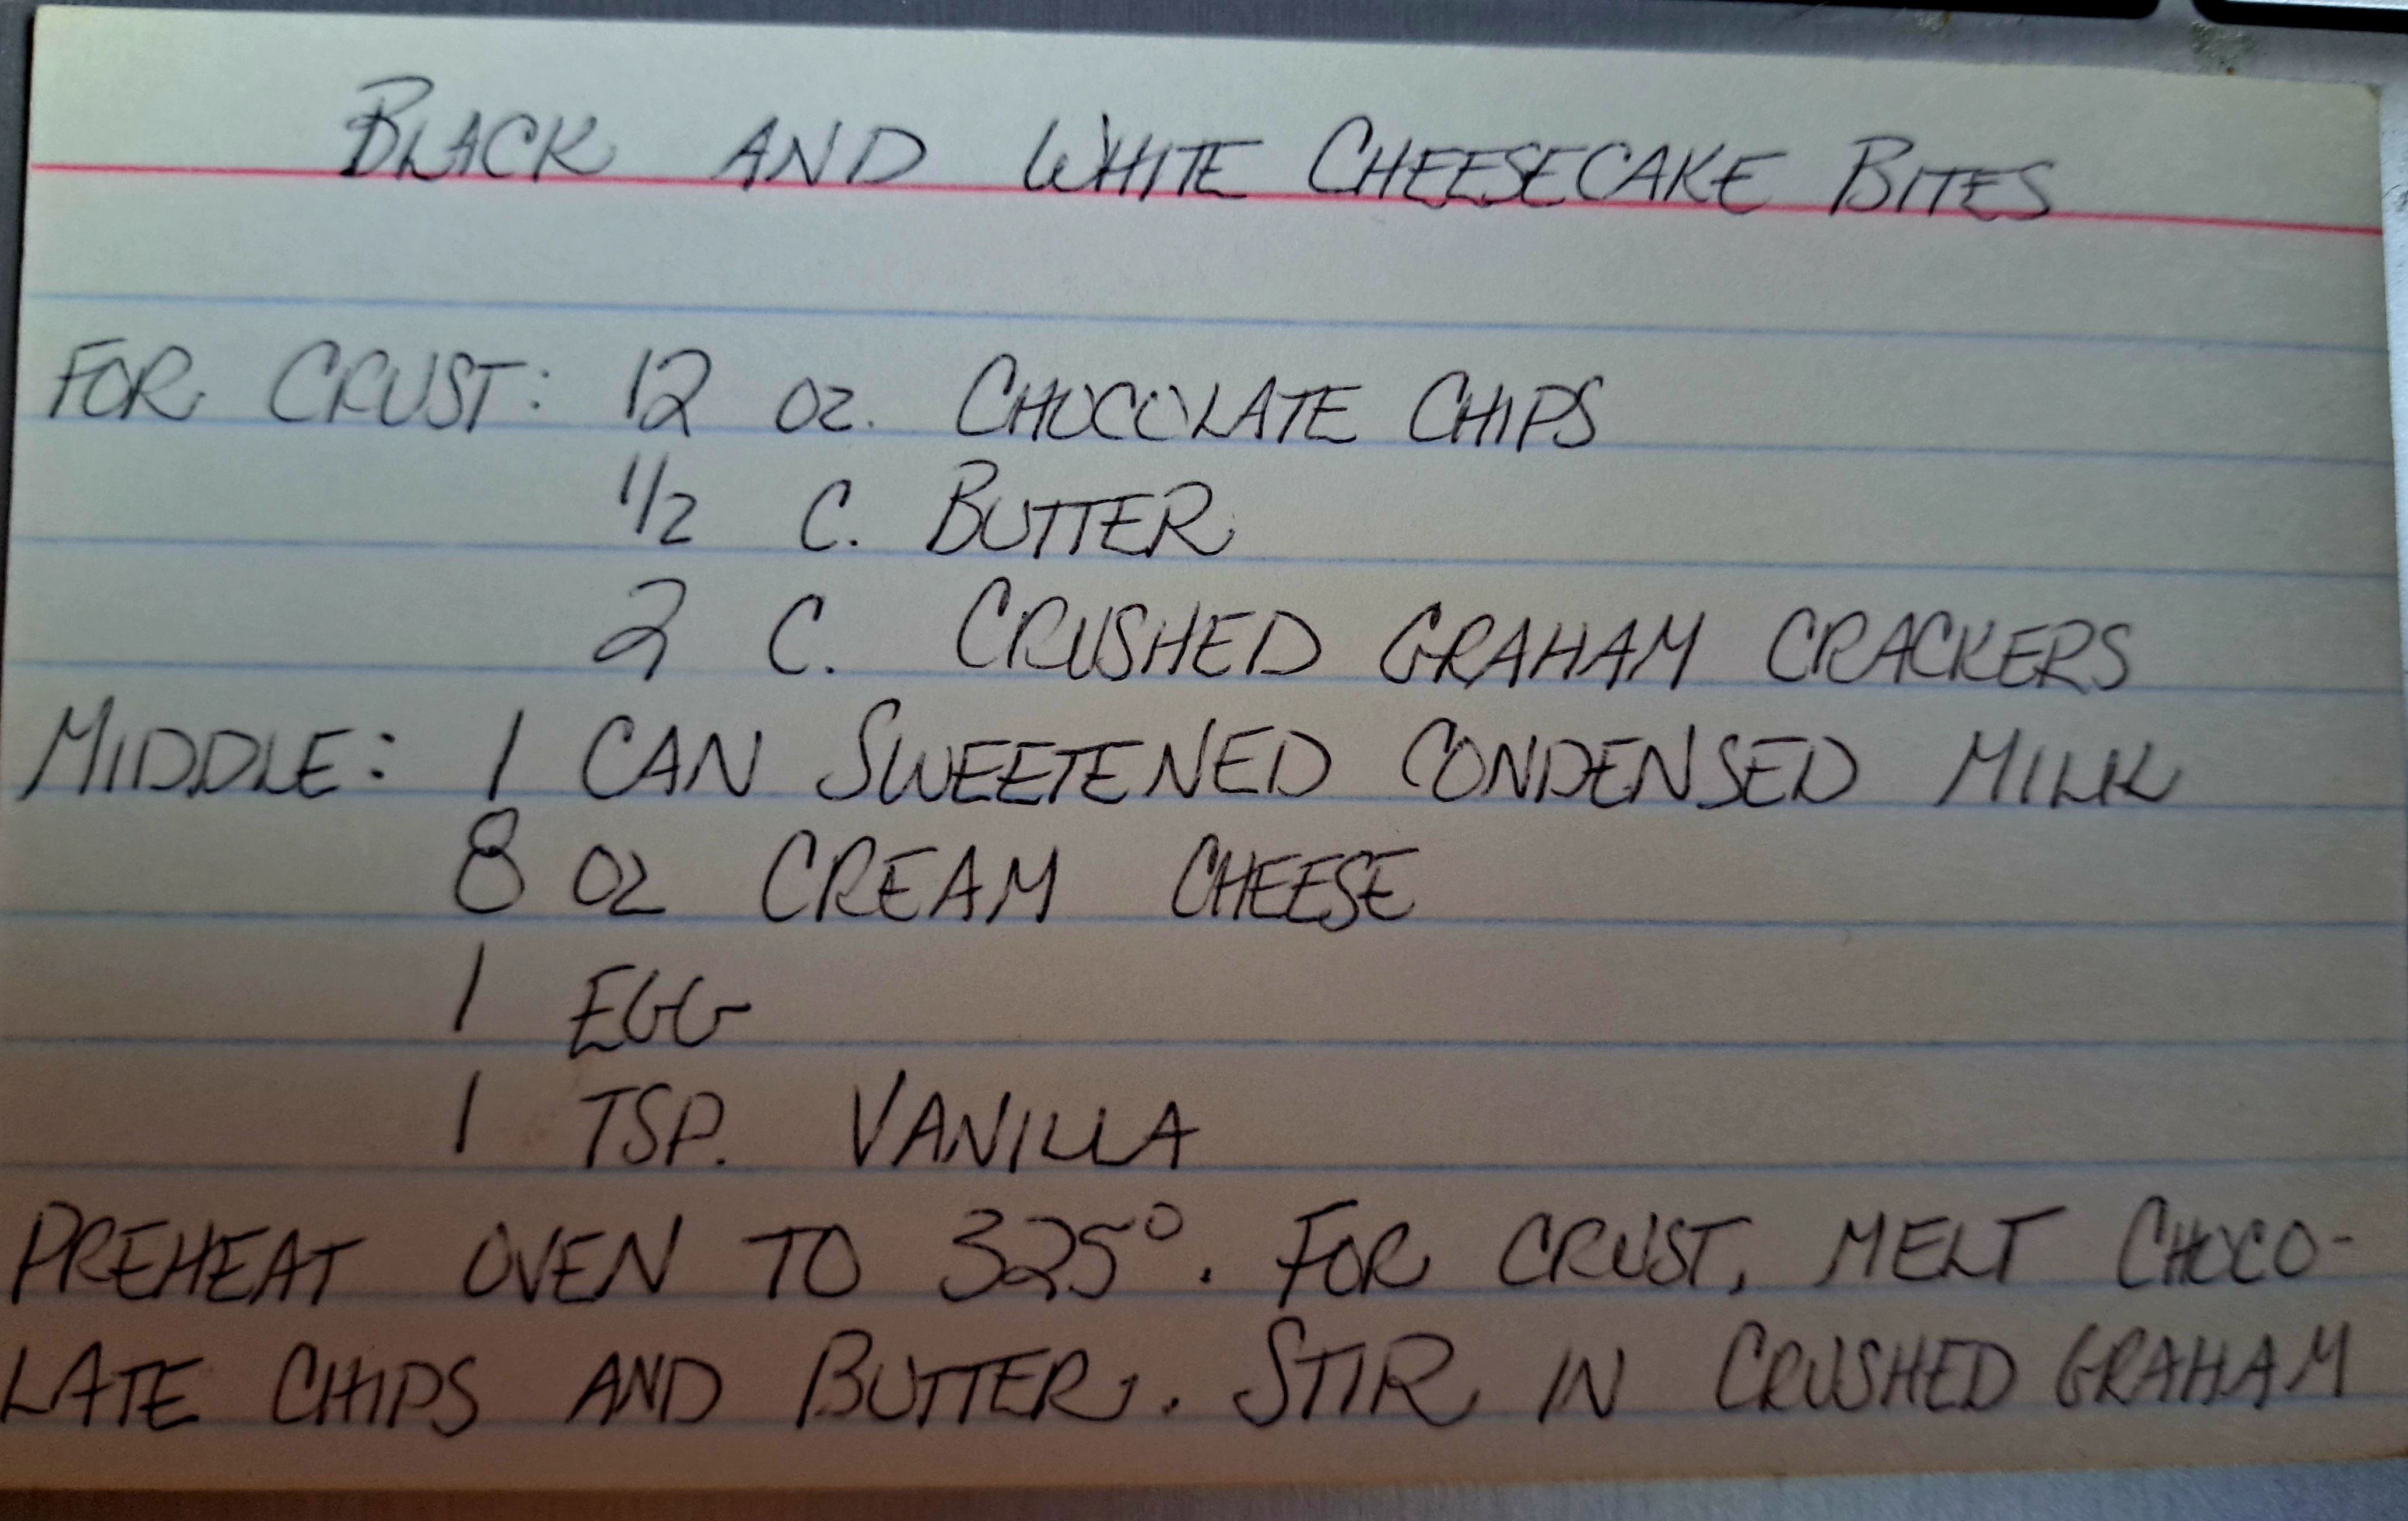 BLACK AND WHITE CHEESECAKE BITES
FOR CRUST: 12 OZ. CHOCOLATE CHIPS
1/2 C. BUTTER
2 C. CRUSHED GRAHAM CRACKERS
MIDDLE: 1 CAN SWEETENED CONDENSED MILK
8 OZ CREAM CHEESE
1 EGG
1 TSP. VANILLA
PREHEAT OVEN TO 325°. FOR CRUST, MELT CHOCO-
LATE CHIPS AND BUTTER. STIR IN CRUSHED GRAHAM